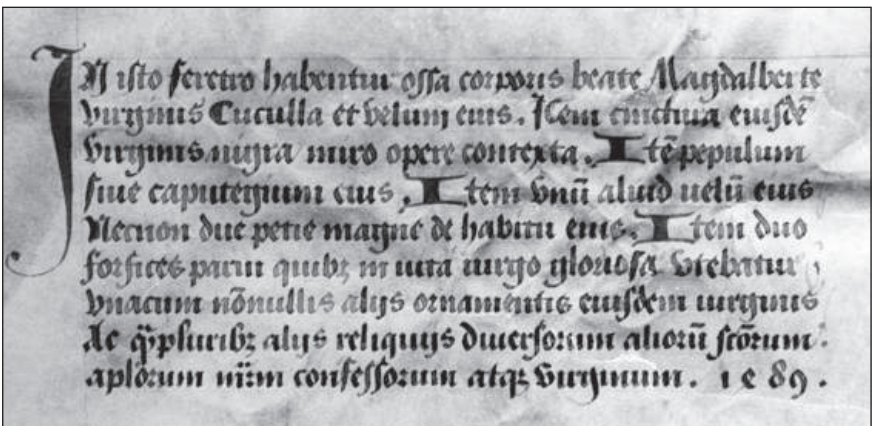 IN isto feretro habentur ossa corporis beate Magdalberte
virginis Cuculla et velum eius. Item cinctura eiusdē
virginis nigra miro opere contexta. Itē pepulum
siue caputegium eius. Item vnū aliud uelū eius
Necnon due petie magne de habitu eius. Item duo
forfices parui quibꝫ in uita uirgo gloriosa vtebatur
vnacum nōnullis alijs ornamentis eiusdem uirginis
Ac q̄pluribꝫ alijs reliquijs diuersorum aliorū scōrum
aplorum mr̄m confessorum atqꝫ virginum. 1 89.